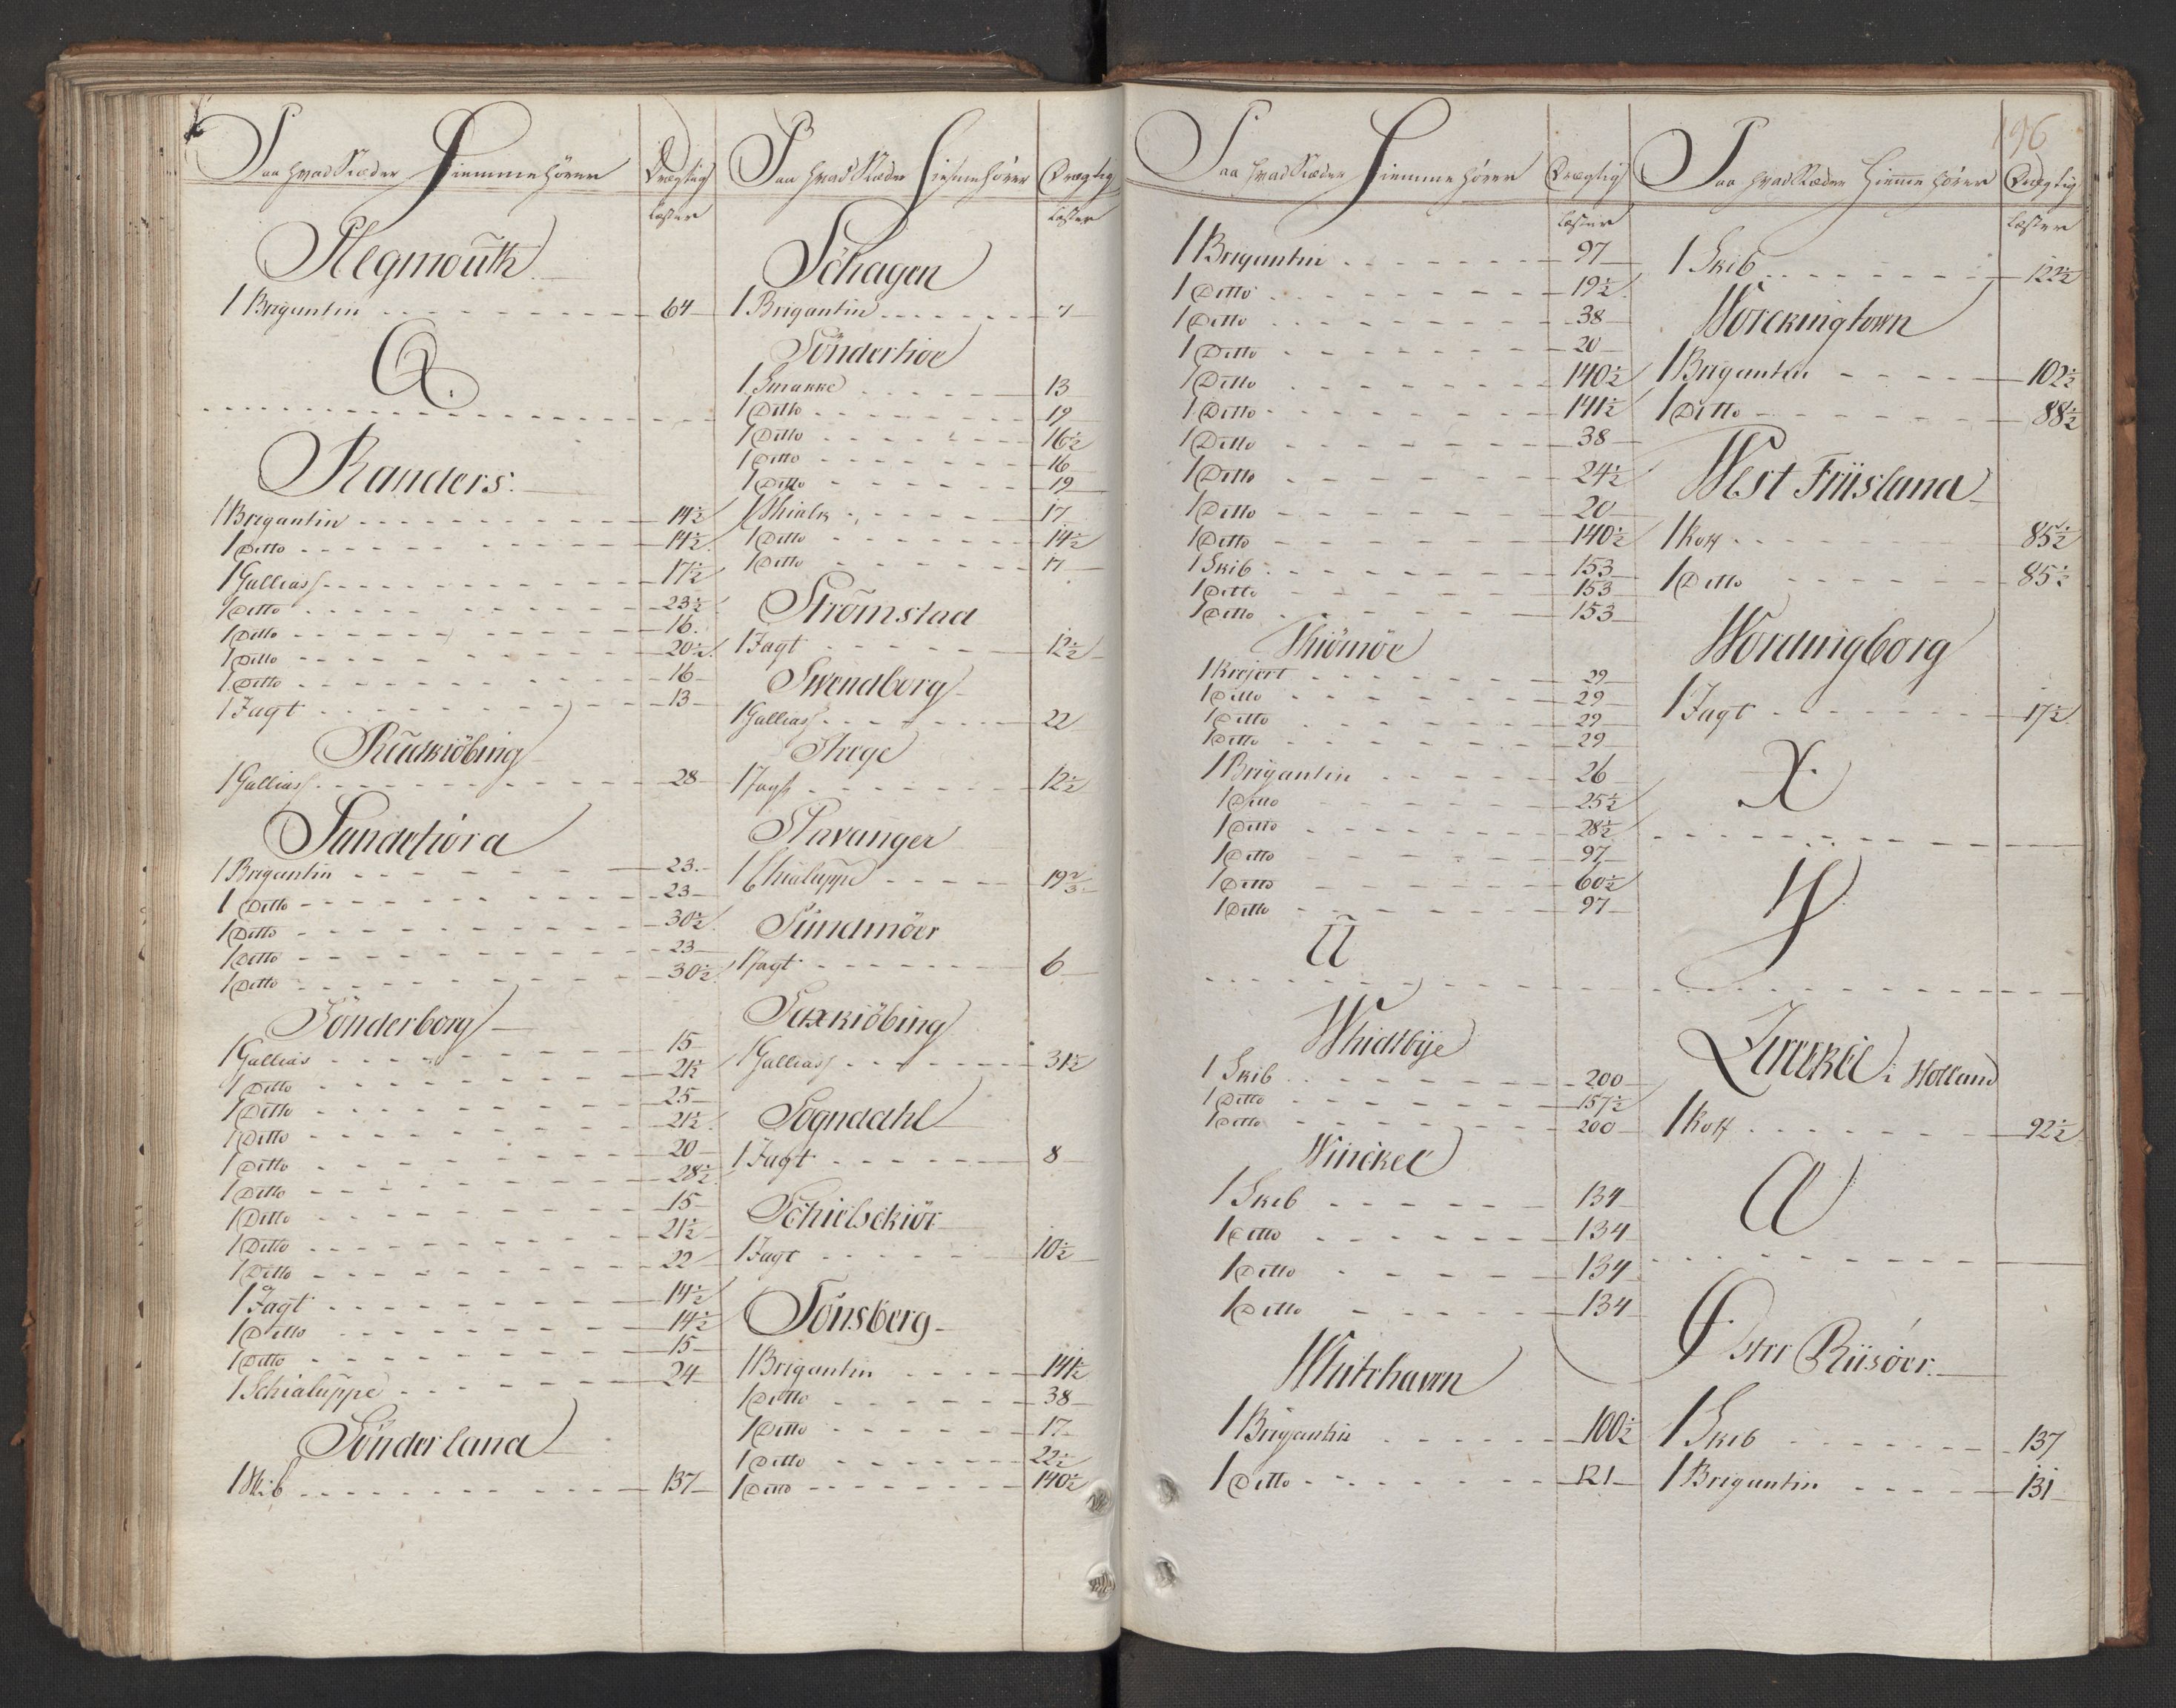 Paa hvad Stæder Hiemmehörer Drægtig
Læster
Plegmouth
1 Brigantin 64
Q.
Randers.
1 Brigantin 14½
1 Ditto 14½
1 Galliass 17½
1 Ditto 23½
1 Ditto 16.
1 Ditto 20½
1 Ditto 16
1 Jagt 13
Rudkiöbing
1 Galliass 28
Sandefiord
1 Brigantin 23.
1 Ditto 23
1 Ditto 30½
1 Ditto 23
1 Ditto 30½
Sönderborg
1 Gallias 15
1 Ditto 21½
1 Ditto 25
1 Ditto 21½
1 Ditto 20
1 Ditto 28½
1 Ditto 15
1 Ditto 21½
1 Ditto 22
1 Jagt 14½
1 Ditto 14½
1 Ditto 15
1 Schialuppe 24
Sönderland
1 Skib 137
Paa hvad Stæder Hiemmehörer Drægtig
Læster
Schagen
1 Brigantin 7
Sönderhoe
1 Smakke 13
1 Ditto 19
1 Ditto 16½
1 Ditto 16
1 Ditto 19
1 17
1 Ditto 14½
1 Ditto 17
Strömstad
1 Jagt 12½
Swendborg
1 Galliass 22
Stege
1 Jagt 12½
Stavanger
1 Chialuppe 19⅔
Sundmöer
1 Jagt 6
Saxkiöbing
1 Galliass 31½
Sogndahl
1 Jagt 8
Schielschiör
1 Jagt 10½
Tönsberg
1 Brigantin 141½
1 Ditto 38
1 Ditto 17
1 Ditto 22½
1 Ditto 140½
Paa hvad Stæder Hiemmehörer Drægtig
Læster
1 Brigantin 97
1 Ditto 19½
1 Ditto 38
1 Ditto 20
1 Ditto 140½
1 Ditto 141½
1 Ditto 38
1 Ditto 24½
1 Ditto 20
1 Ditto 140½
1 Skib 153
1 Ditto 153
1 Ditto 153
Thiömöe
1 Krejert 29
1 Ditto 29
1 Ditto 29
1 Ditto 29
1 Brigantin 26
1 Ditto 25½
1 Ditto 28½
1 Ditto 97
1 Ditto 60½
1 Ditto 97
U
Whidbÿe
1 Skib 200
1 Ditto 157½
1 Ditto 200
Winckel
1 Skib 134
1 Ditto 134
1 Ditto 134
1 Ditto 134
Whitehaven
1 Brigantin 100½
1 Ditto 121
196
Paa hvad Stæder Hiemmehörer Drægtig
Læster
1 Skib 122½
Worckingtown
1 Brigantin 102½
1 Ditto 88½
West Friisland
1 Koff 85½
1 Ditto 85½
Wordingborg
1 Jagt 17½
X.
Y
Zirckèe i Holland
1 Koff 92½
Æ
Öster Riisöer
1 Skib 137
1 Brigantin 131